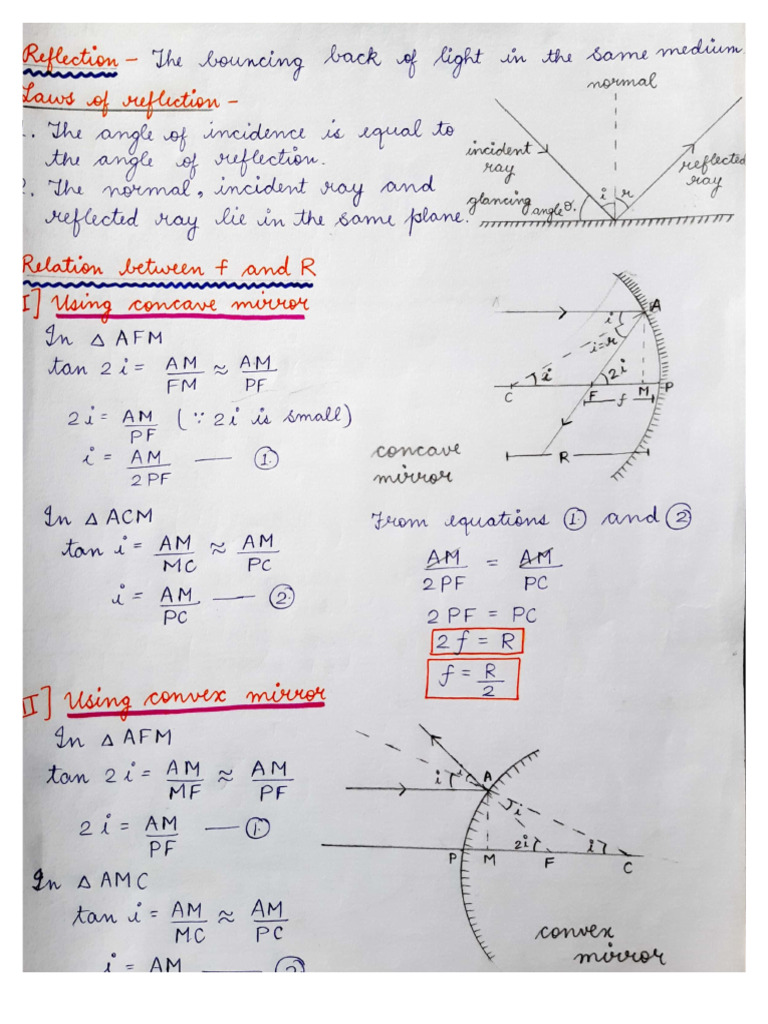 Reflection - The bouncing back of light in the same medium
Laws of reflection -
1. The angle of incidence is equal to
the angle of reflection.
2. The normal, incident ray and
reflected ray lie in the same plane.
normal
incident
ray
reflected
ray
glancing
angle θ.
i
r
Relation between f and R
I] Using concave mirror
In △ AFM
tan 2i = AM/FM ≈ AM/PF
2i = AM/PF (∵ 2i is small)
i = AM/2PF —— ①
In △ ACM
tan i = AM/MC ≈ AM/PC
i = AM/PC —— ②
A
i
i=r
i
2i
C
F
M
P
f
R
concave
mirror
From equations ① and ②
AM/2PF = AM/PC
2PF = PC
2f = R
f = R/2
II] Using convex mirror
In △ AFM
tan 2i = AM/MF ≈ AM/PF
2i = AM/PF —— ①
In △ AMC
tan i = AM/MC ≈ AM/PC
i = AM —— ②
i
i
A
i
2i
i
P
M
F
C
convex
mirror